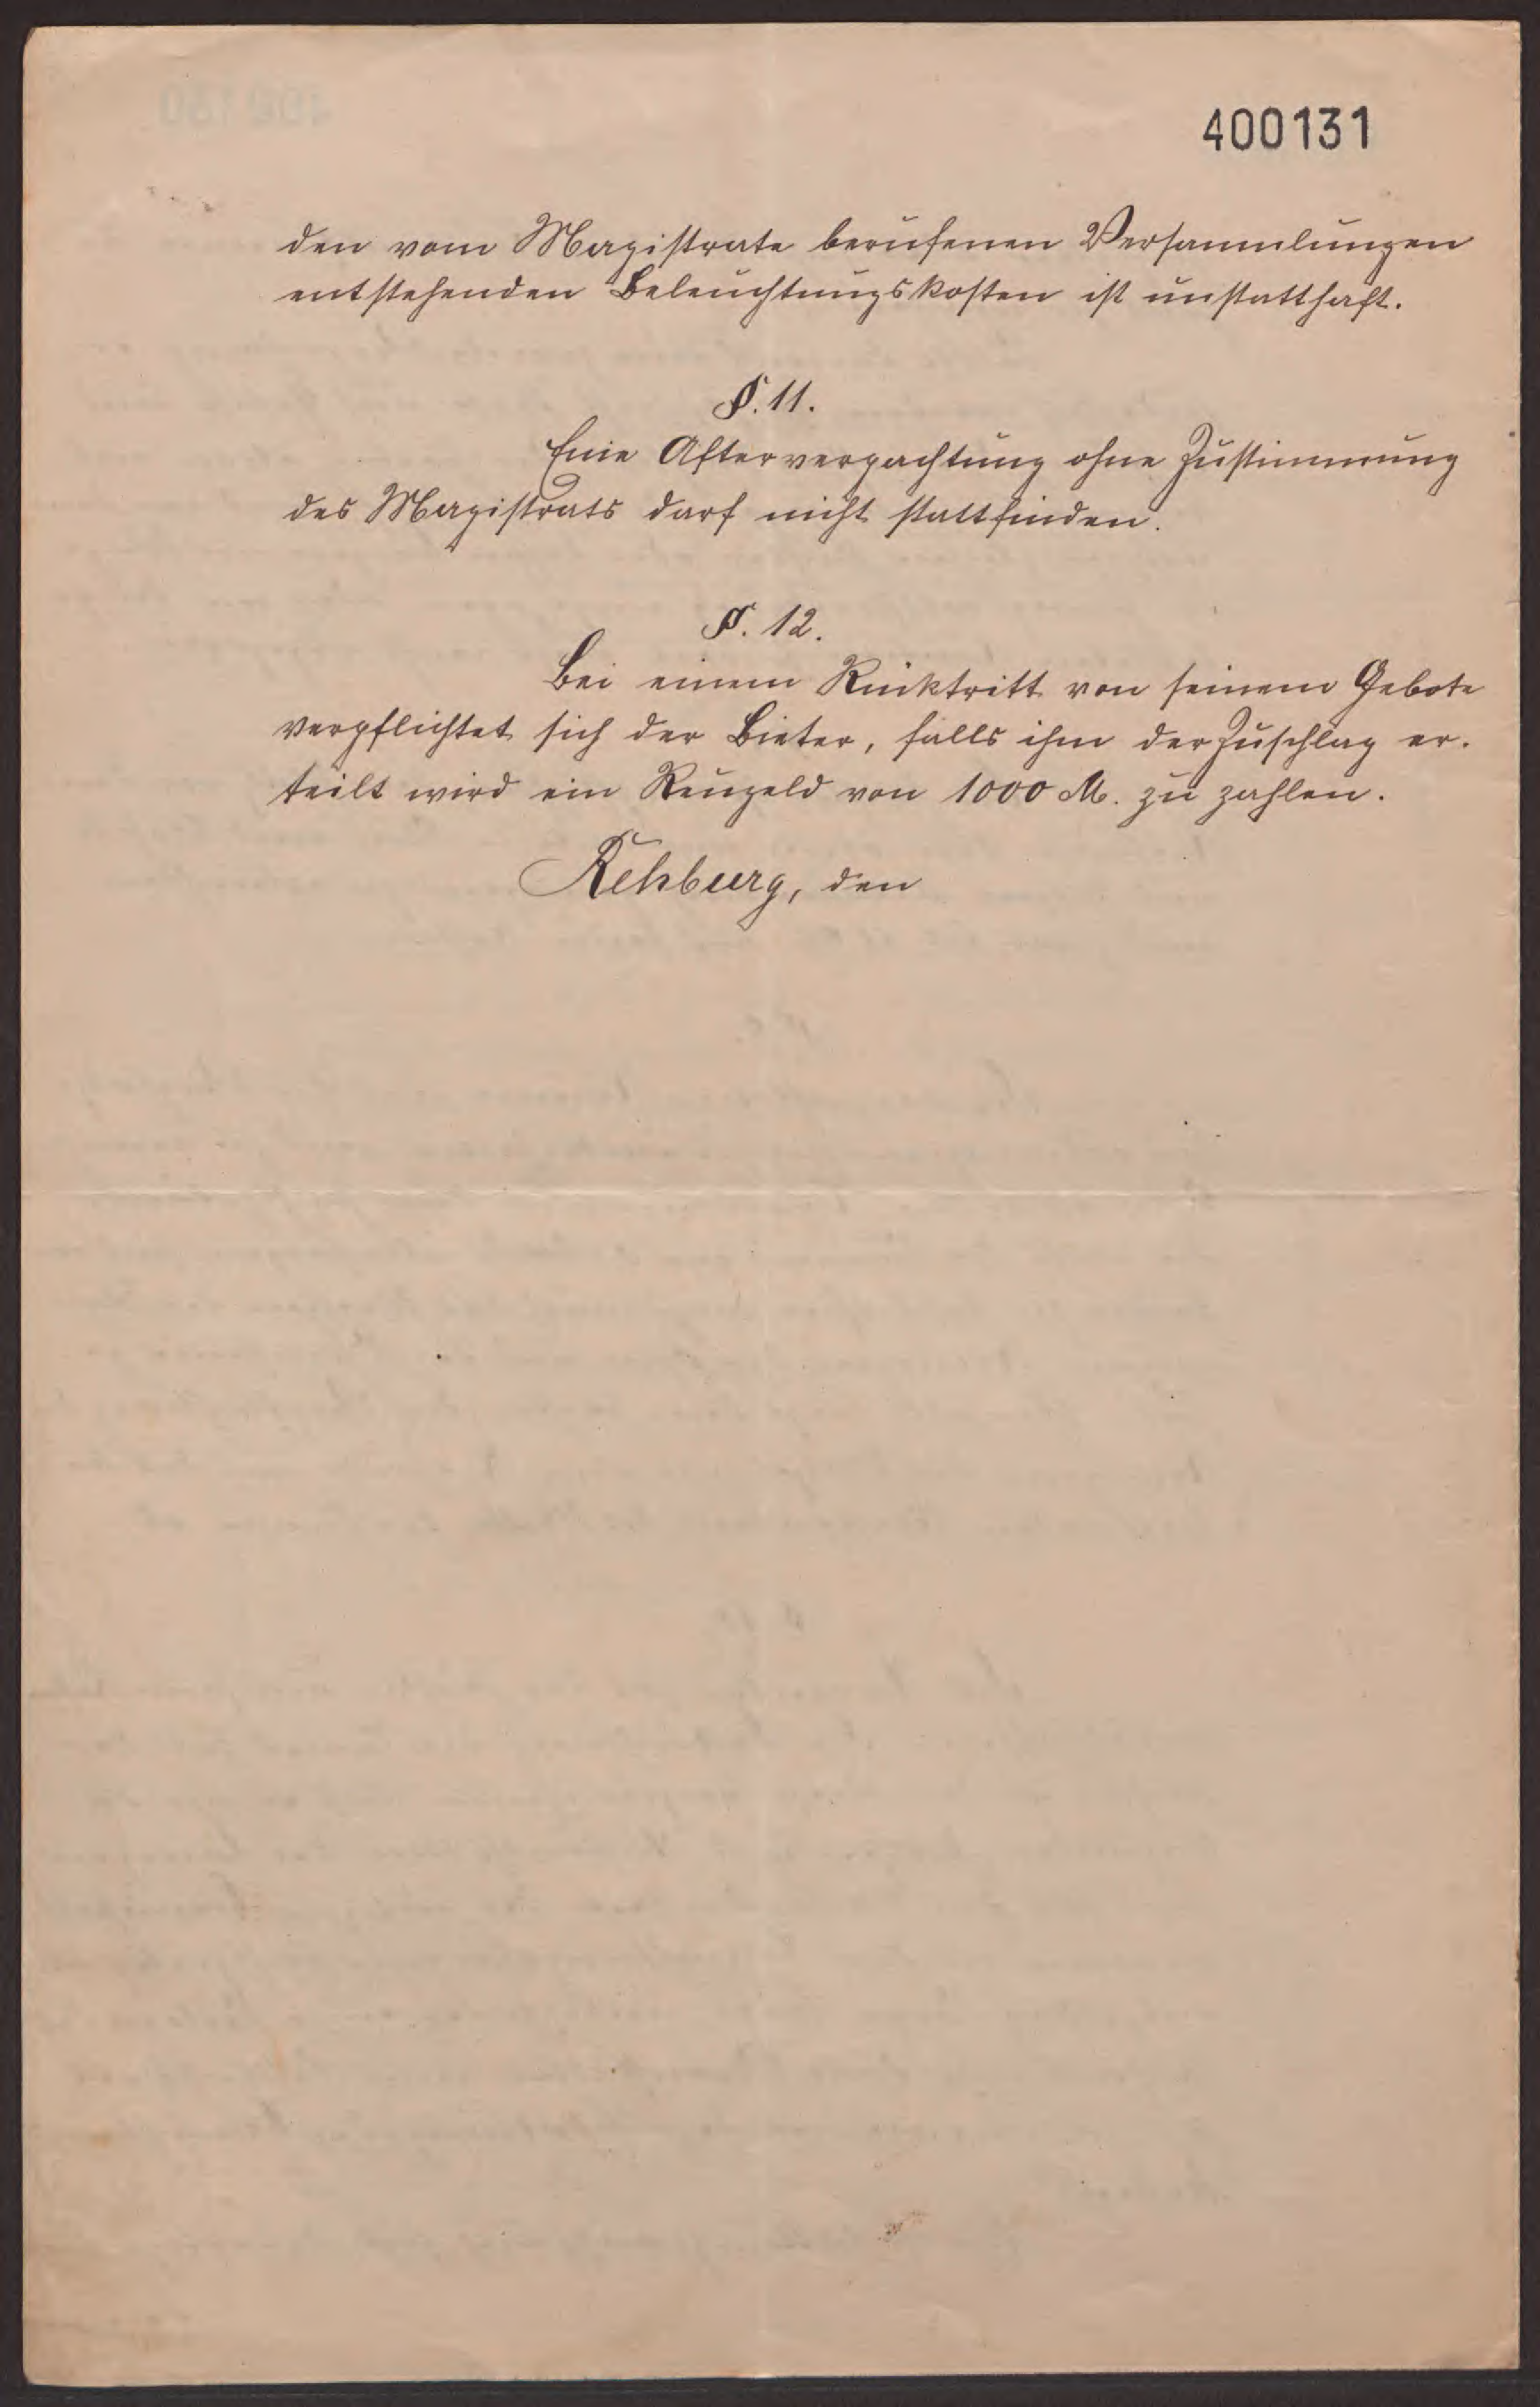 400131
den vom Magistrate berufenen Versammlungen
entstehenden Beleuchtungskosten ist unstatthaft.
§. 11.
Eine Afterverpachtung ohne Zustimmung
des Magistrats darf nicht stattfinden.
§. 12.
Bei einem Rücktritt von seinem Gebote
verpflichtet sich der Bieter, falls ihm der Zuschlag er-
teilt wird ein Reugeld von 1000 M. zu zahlen.
Rehburg, den